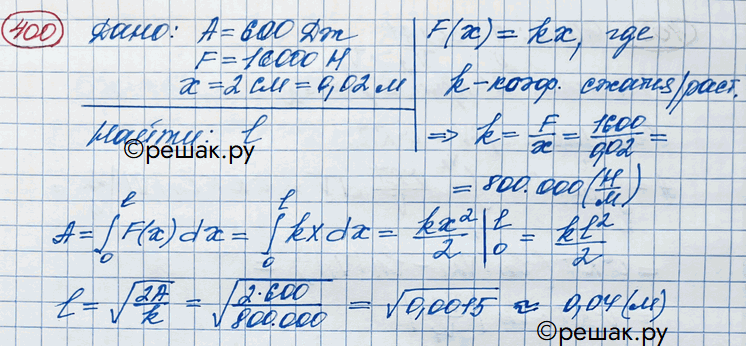 400 Дано: A = 600 Дж
F = 16000 Н
x = 2 см = 0,02 м
Найти: l
©решак.ру
F(x) = kx, где
k – коэф. сжатия/раст.
⇒ k = F/x = 1600/0,02 =
= 800.000 (Н/м)
A = ∫₀ˡ F(x) dx = ∫₀ˡ kx dx = kx²/2 |₀ˡ = kl²/2
l = √(2A/k) = √(2·600/800.000) = √0,0015 ≈ 0,04 (м)
©решак.ру